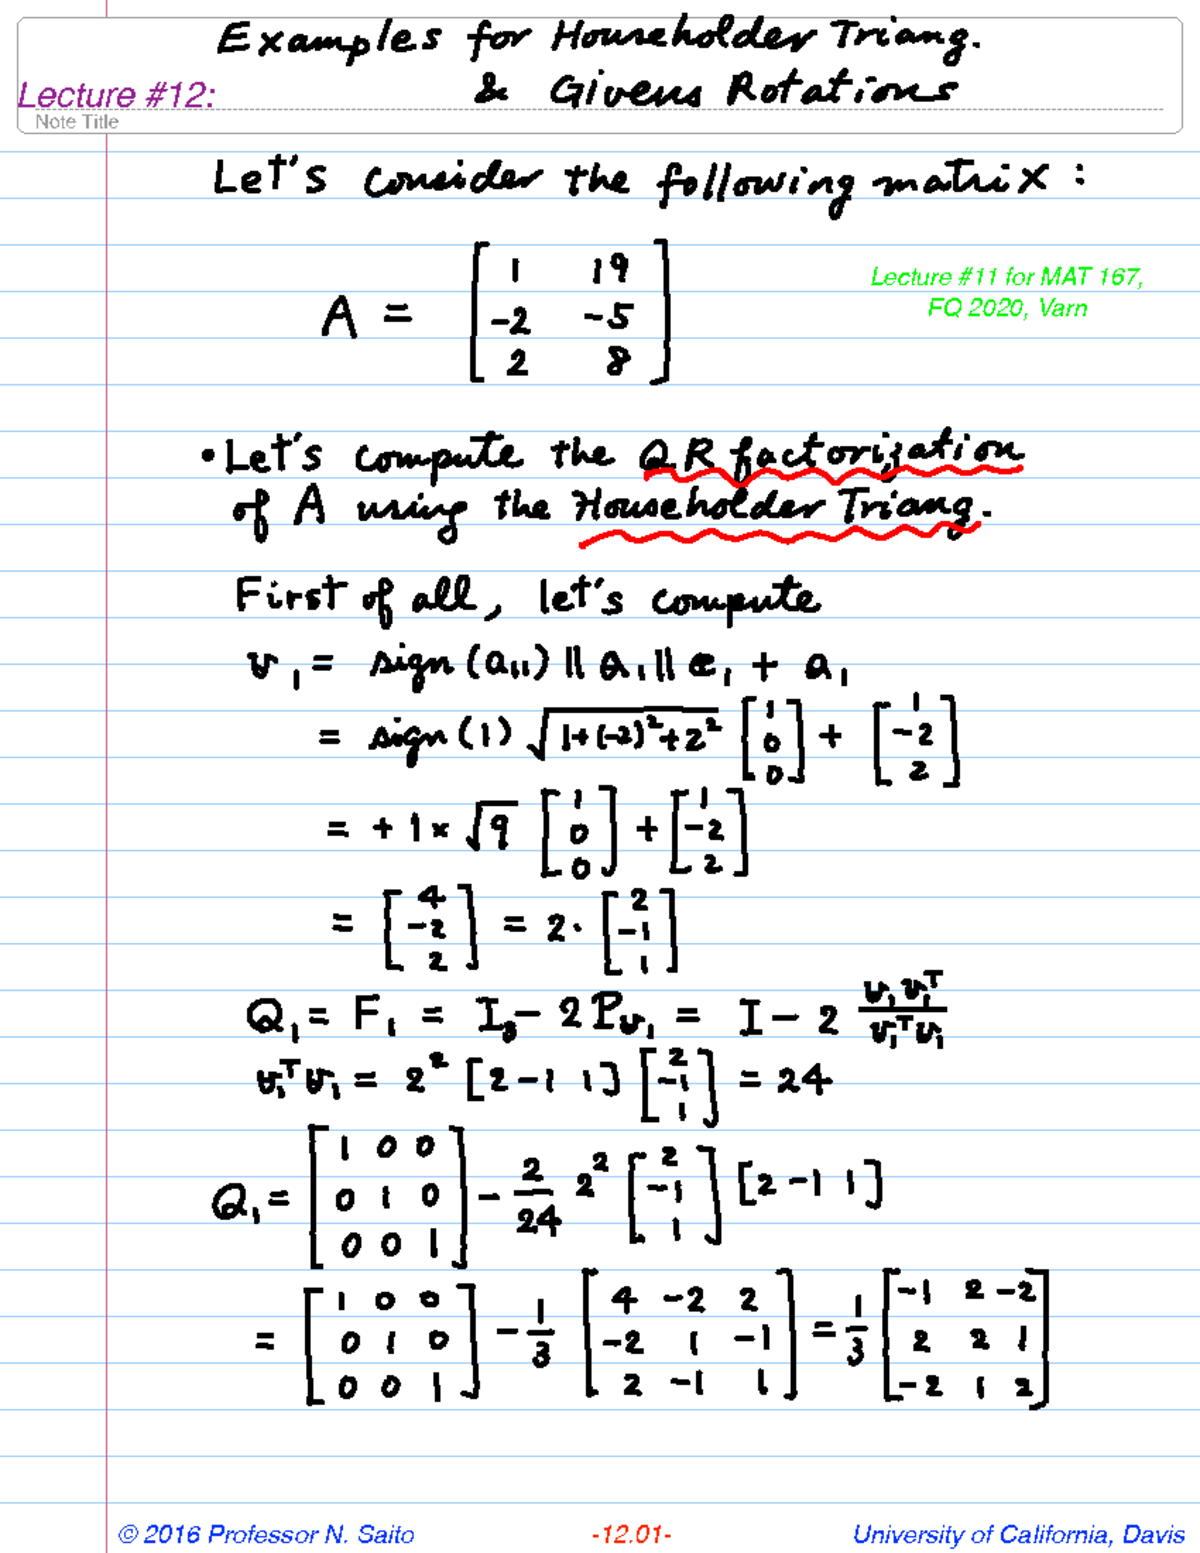 Examples for Householder Triang.
Lecture #12: & Givens Rotations
Note Title
Let's consider the following matrix :
A = [ 1 19
-2 -5
2 8 ]
Lecture #11 for MAT 167,
FQ 2020, Varn
• Let's compute the QR factorization
of A using the Householder Triang.
First of all, let's compute
v₁ = sign (a₁₁) || a₁ || e₁ + a₁
= sign (1) √(1+(-2)²+2²) [1 0 0] + [1 -2 2]
= + 1 × √9 [1 0 0] + [1 -2 2]
= [4 -2 2] = 2 · [2 -1 1]
Q₁ = F₁ = I₃ - 2 P_v₁ = I - 2 v₁v₁ᵀ / v₁ᵀv₁
v₁ᵀv₁ = 2² [2 -1 1] [2 -1 1] = 24
Q₁ = [1 0 0
0 1 0
0 0 1] - 2/24 2² [2 -1 1] [2 -1 1]
= [1 0 0
0 1 0
0 0 1] - 1/3 [4 -2 2
-2 1 -1
2 -1 1] = 1/3 [-1 2 -2
2 2 1
-2 1 2]
© 2016 Professor N. Saito -12.01- University of California, Davis